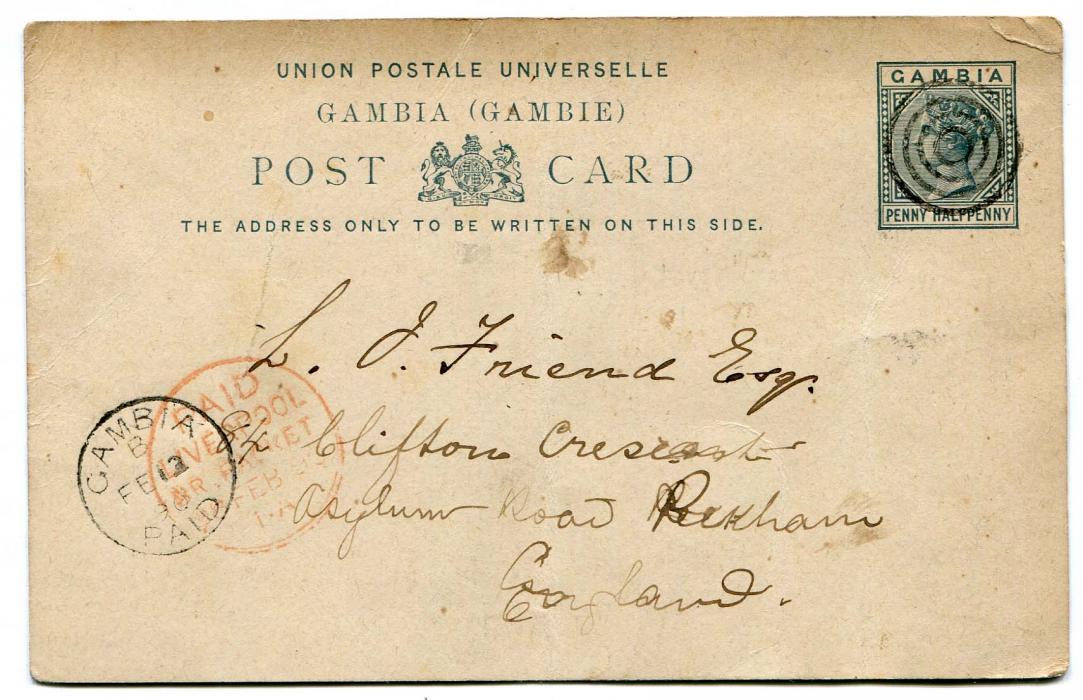 UNION POSTALE UNIVERSELLE
GAMBIA (GAMBIE)
POST CARD
THE ADDRESS ONLY TO BE WRITTEN ON THIS SIDE.
GAMBIA
PENNY HALFPENNY
L. J. Friend Esq.
Clifton Crescent
Asylum Road Peckham
England.
PAID
LIVERPOOL
BR. PACKET
FEB
GAMBIA
B
FE 12
PAID